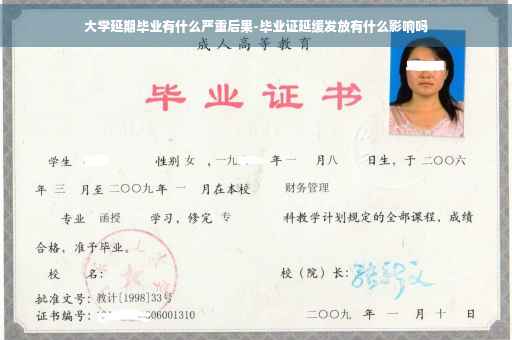 大学延期毕业有什么严重后果-毕业证延缓发放有什么影响吗
成人高等教育
毕业证书
学生 性别 女 ，一九 年 一 月八 日生，于 二〇〇六
年 三 月至 二〇〇九 年 一 月在本校 财务管理
专业 函授 学习，修完 专 科教学计划规定的全部课程，成绩
合格，准予毕业。
校 名： 校（院）长：
批准文号：教计[1998]33号
证书编号： 06001310 二〇〇九 年 一 月 十 日